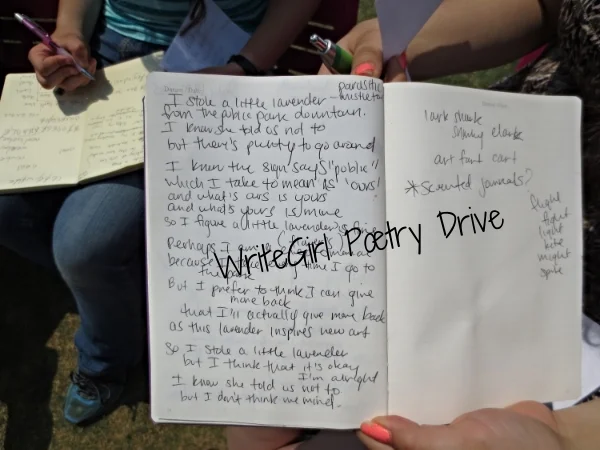 parasitic
I stole a little lavender
from the public park downtown.
I know she told us not to
but there's plenty to go around
I know the sign says "public"
which I take to mean as 'ours'
and what's ours is yours
and what's yours is mine
so I figure a little lavender's
Perhaps I am a
because time I go to
the park
But I prefer to think I can give
more back
that I'll actually give more back
as this lavender inspires new art
So I stole a little lavender
but I think that it's okay
I'm alright
I know she told us not to
but I don't think we mind.
WriteGirl Poetry Drive
lark shark
art fart cart
*Scented journals?
flight
fight
light
bite
might
spite